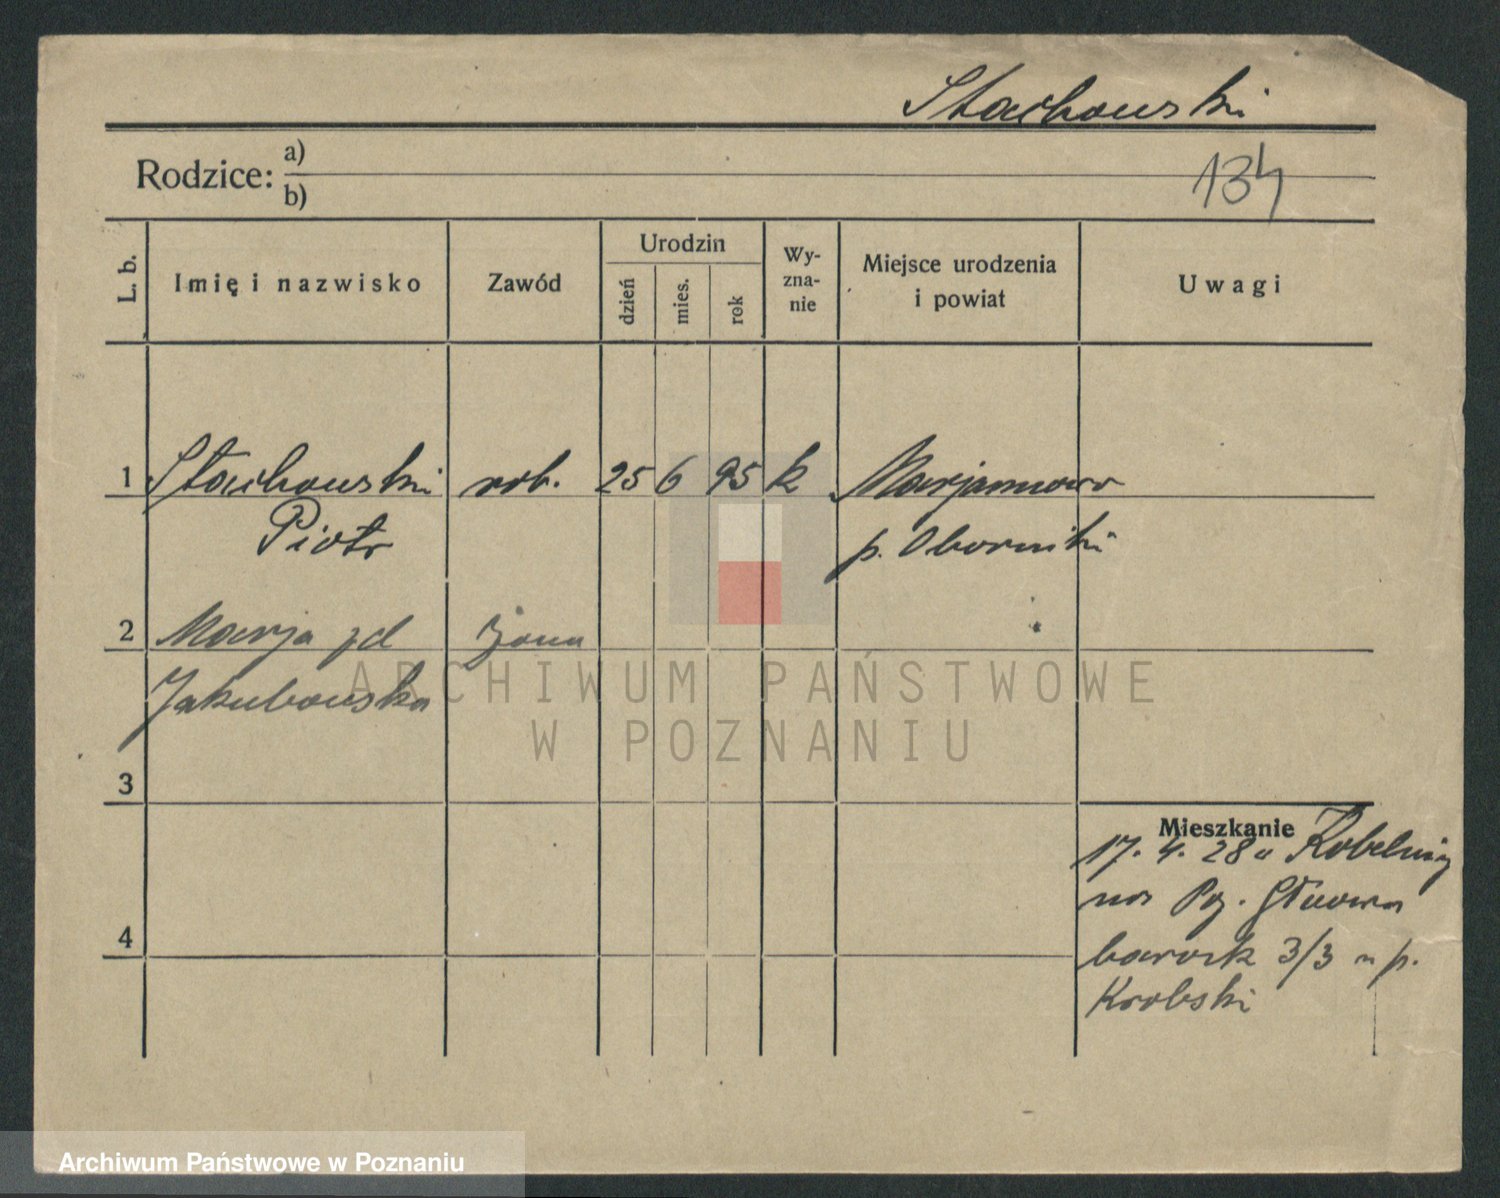 Stachowski
Rodzice: a)
b)
134
L. b.
Imię i nazwisko
Zawód
Urodzin
dzień
mies.
rok
Wy-
zna-
nie
Miejsce urodzenia
i powiat
Uwagi
1 Stachowski rob. 25 6 95 k Marjanowo
Piotr p. Oborniki
2 Marja zd żona
Jakubowska
3
4
Mieszkanie
17. 4. 28 Kobelnicy
na Pozn. Główna
barak 3/3 u p.
Krobski
ARCHIWUM PAŃSTWOWE
W POZNANIU
Archiwum Państwowe w Poznaniu